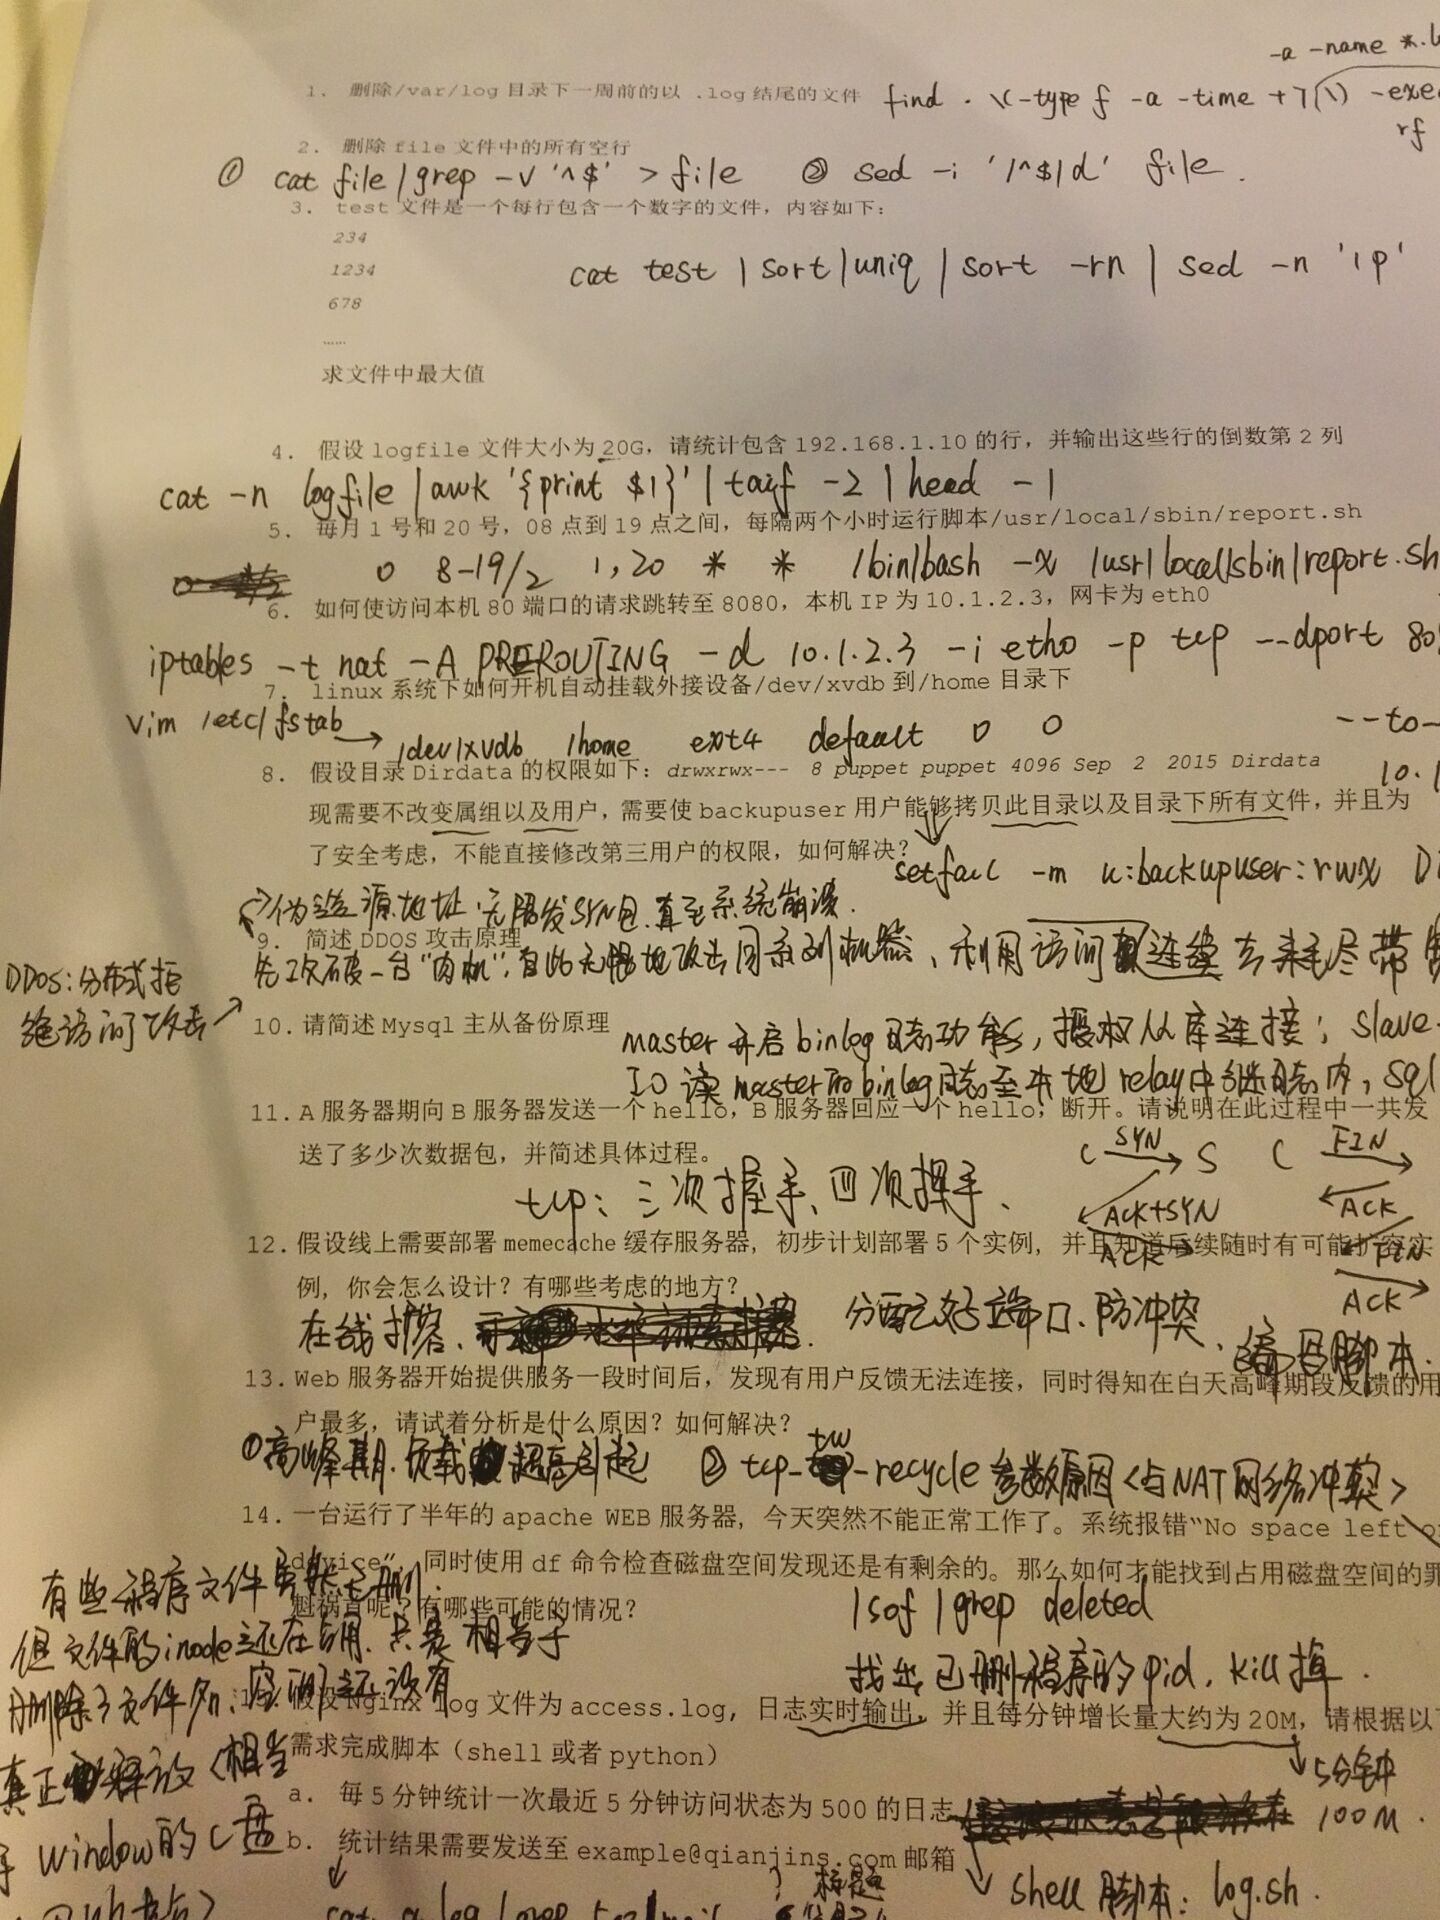 -a -name *.l
1. 删除/var/log目录下一周前的以 .log结尾的文件 find . \(-type f -a -time +7(\) -exec
rf
2. 删除file文件中的所有空行
① cat file |grep -v '^$' > file ② sed -i '/^$/d' file .
3. test文件是一个每行包含一个数字的文件，内容如下：
234
1234
678
……
cat test | sort |uniq | sort -rn | sed -n '1p'
求文件中最大值
4. 假设logfile文件大小为20G，请统计包含192.168.1.10的行，并输出这些行的倒数第2列
cat -n logfile | awk '{print $1}' | tail -2 | head -1
5. 每月1号和20号，08点到19点之间，每隔两个小时运行脚本/usr/local/sbin/report.sh
0 8-19/2 1,20 * * /bin/bash -x /usr/local/sbin/report.sh
6. 如何使访问本机80端口的请求跳转至8080，本机IP为10.1.2.3，网卡为eth0
iptables -t nat -A PREROUTING -d 10.1.2.3 -i eth0 -p tcp --dport 80
7. linux系统下如何开机自动挂载外接设备/dev/xvdb到/home目录下
vim /etc/fstab → /dev/xvdb /home ext4 default 0 0
--to-
10.1
8. 假设目录Dirdata的权限如下：drwxrwx--- 8 puppet puppet 4096 Sep 2 2015 Dirdata
现需要不改变属组以及用户，需要使backupuser用户能够拷贝此目录以及目录下所有文件，并且为
了安全考虑，不能直接修改第三用户的权限，如何解决？
setfacl -m u:backupuser:rwx D
伪造源地址.无限发SYN包.直至系统崩溃.
9. 简述DDOS攻击原理
先攻破一台"肉机",自此无限地攻击同系列机器、利用访问连续去耗尽带宽
DDOS:分布式拒
绝访问攻击
10.请简述Mysql主从备份原理
master开启binlog日志功能,授权从库连接; slave-
IO读master的binlog日志至本地relay中继日志内, sql
11.A服务器期向B服务器发送一个hello，B服务器回应一个hello，断开。请说明在此过程中一共发
送了多少次数据包，并简述具体过程。
tcp: 三次握手、四次挥手、
C SYN S C FIN
ACK+SYN ACK
ACK FIN
ACK
12.假设线上需要部署memecache缓存服务器，初步计划部署5个实例，并且知道后续随时有可能扩容实
例，你会怎么设计？有哪些考虑的地方？
在线扩容、 分配好端口、防冲突、编写脚本.
13.Web服务器开始提供服务一段时间后，发现有用户反馈无法连接，同时得知在白天高峰期段反馈的用
户最多，请试着分析是什么原因？如何解决？
①高峰期.负载超高引起 ② tcp-tw-recycle 参数原因<与NAT网络冲突>
14.一台运行了半年的apache WEB服务器，今天突然不能正常工作了。系统报错“No space left on
device”，同时使用df命令检查磁盘空间发现还是有剩余的。那么如何才能找到占用磁盘空间的罪
魁祸首呢？有哪些可能的情况？
lsof | grep deleted
找出已删程序的pid, kill掉.
有些程序文件虽然已删.
但文件的inode还在占用.只是相当于
删除了文件名,空间还没有
真正释放<相当
于window的C盘
假设Nginx log文件为access.log，日志实时输出，并且每分钟增长量大约为20M，请根据以下
需求完成脚本（shell或者python）
5分钟
100M.
a. 每5分钟统计一次最近5分钟访问状态为500的日志
b. 统计结果需要发送至example@qianjins.com邮箱
shell 脚本: log.sh.
标题